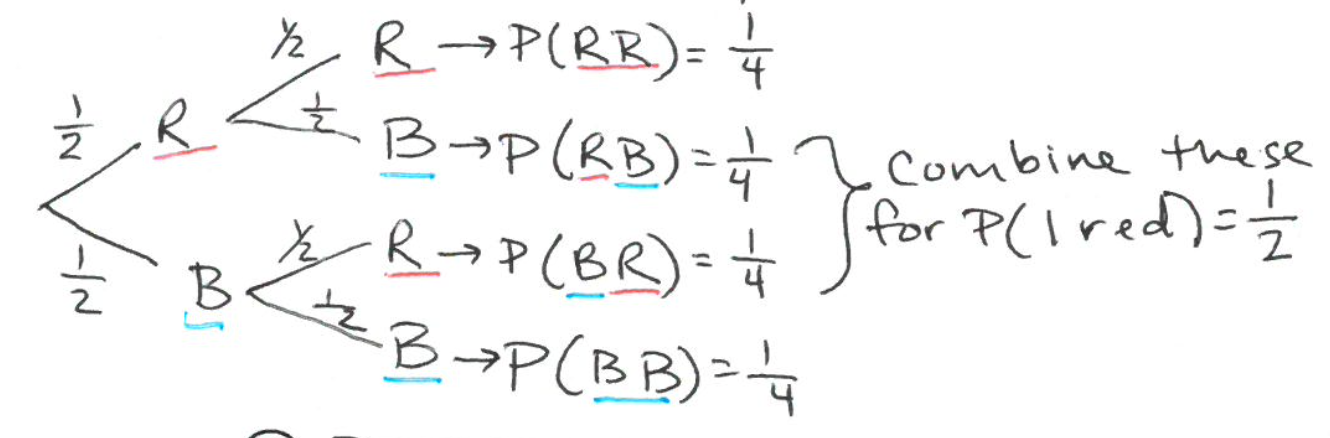 1/2 R → P(RR) = 1/4
1/2 R 1/2 B → P(RB) = 1/4
1/2 B 1/2 R → P(BR) = 1/4
1/2 B → P(BB) = 1/4
Combine these
for P(1 red) = 1/2